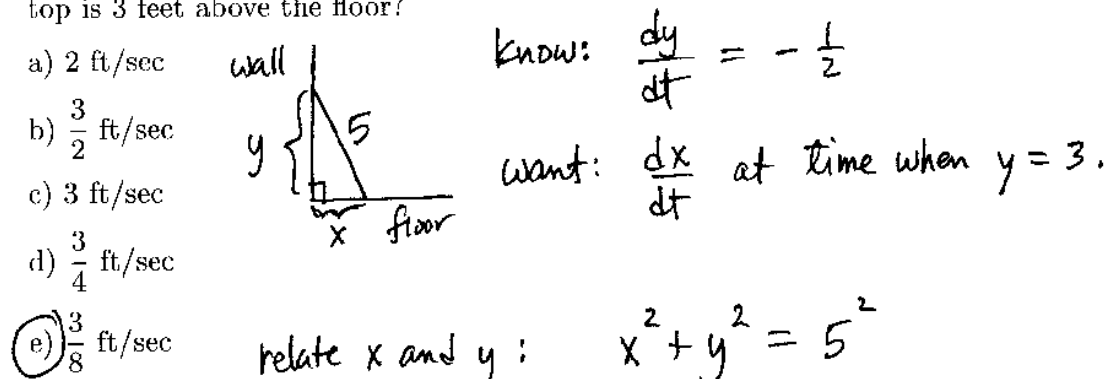 top is 3 feet above the floor?
a) 2 ft/sec
b) 3/2 ft/sec
c) 3 ft/sec
d) 3/4 ft/sec
e) 3/8 ft/sec
wall
y
5
x
floor
know: dy/dt = - 1/2
want: dx/dt at time when y = 3.
relate x and y: x² + y² = 5²